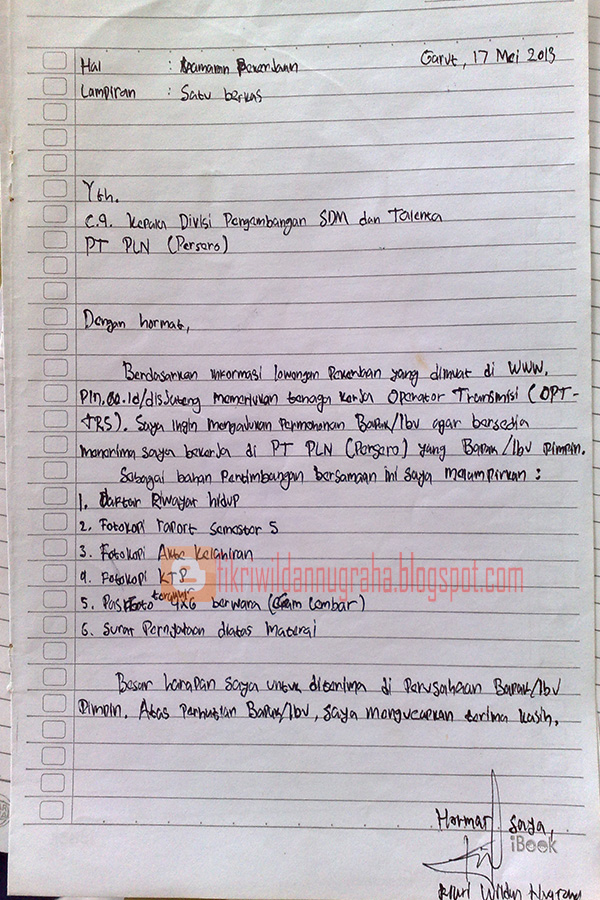 Hal : Lamaran Pekerjaan Garut, 17 Mei 2013
Lampiran : Satu berkas
Yth.
c.q. Kepala Divisi Pengembangan SDM dan Talenta
PT PLN (Persero)
Dengan hormat,
Berdasarkan informasi lowongan Pekerjaan yang dimuat di WWW.
Pln.co.id/disjateng memerlukan tenaga kerja Operator Transmisi (OPT-
TRS). Saya ingin mengajukan Permohonan Bapak/Ibu agar bersedia
menerima saya bekerja di PT PLN (Persero) yang Bapak/Ibu Pimpin.
Sebagai bahan Pertimbangan bersamaan ini saya melampirkan :
1. Daftar Riwayat hidup
2. Fotokopi raport semester 5
3. Fotokopi Akte Kelahiran
4. Fotokopi KTP
fikriwildannugraha.blogspot.com
5. Pas Foto terakhir 4x6 berwarna (Enam Lembar)
6. Surat Pernyataan diatas Materai
Besar harapan saya untuk diterima di Perusahaan Bapak/Ibu
Pimpin. Atas Perhatian Bapak/Ibu, saya mengucapkan terima kasih.
Hormat saya,
iBook
Fikri Wildan Nugraha